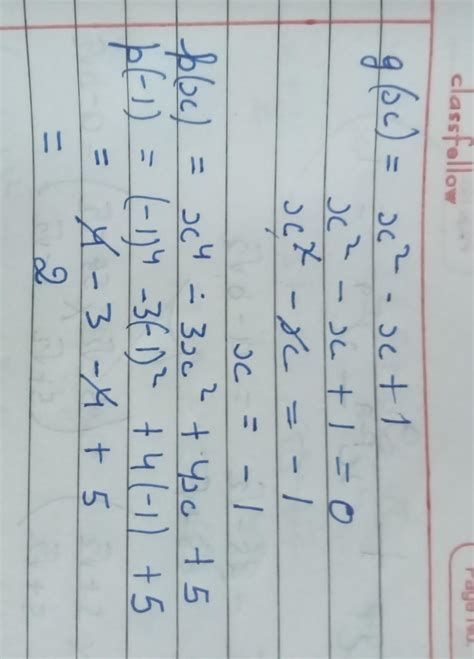 classfellow
Page No.
g(x) = x² - x + 1
x² - x + 1 = 0
x² - x = -1
x = -1
p(x) = x⁴ - 3x² + 4x + 5
p(-1) = (-1)⁴ - 3(-1)² + 4(-1) + 5
= 4 - 3 - 4 + 5
= 2